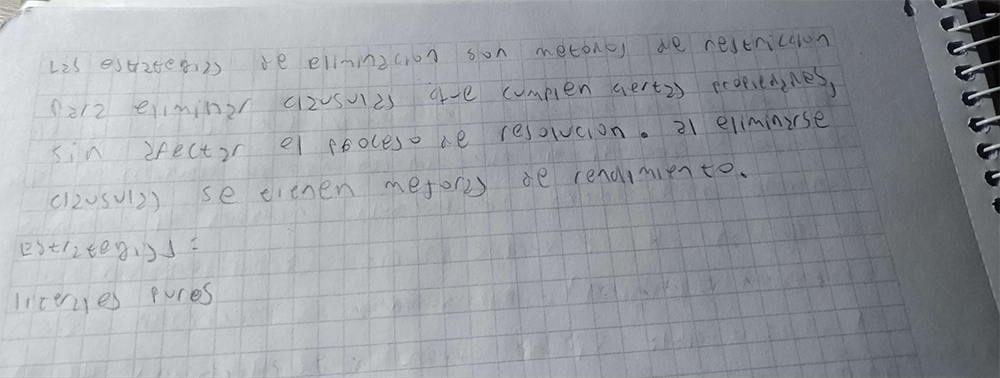 Las estrategias de eliminacion son metodos de restriccion
para eliminar clausulas que cumplen ciertas propiedades,
sin afectar el proceso de resolucion. al eliminarse
clausulas se tienen mejoras de rendimiento.
Estrategias:
literales pures